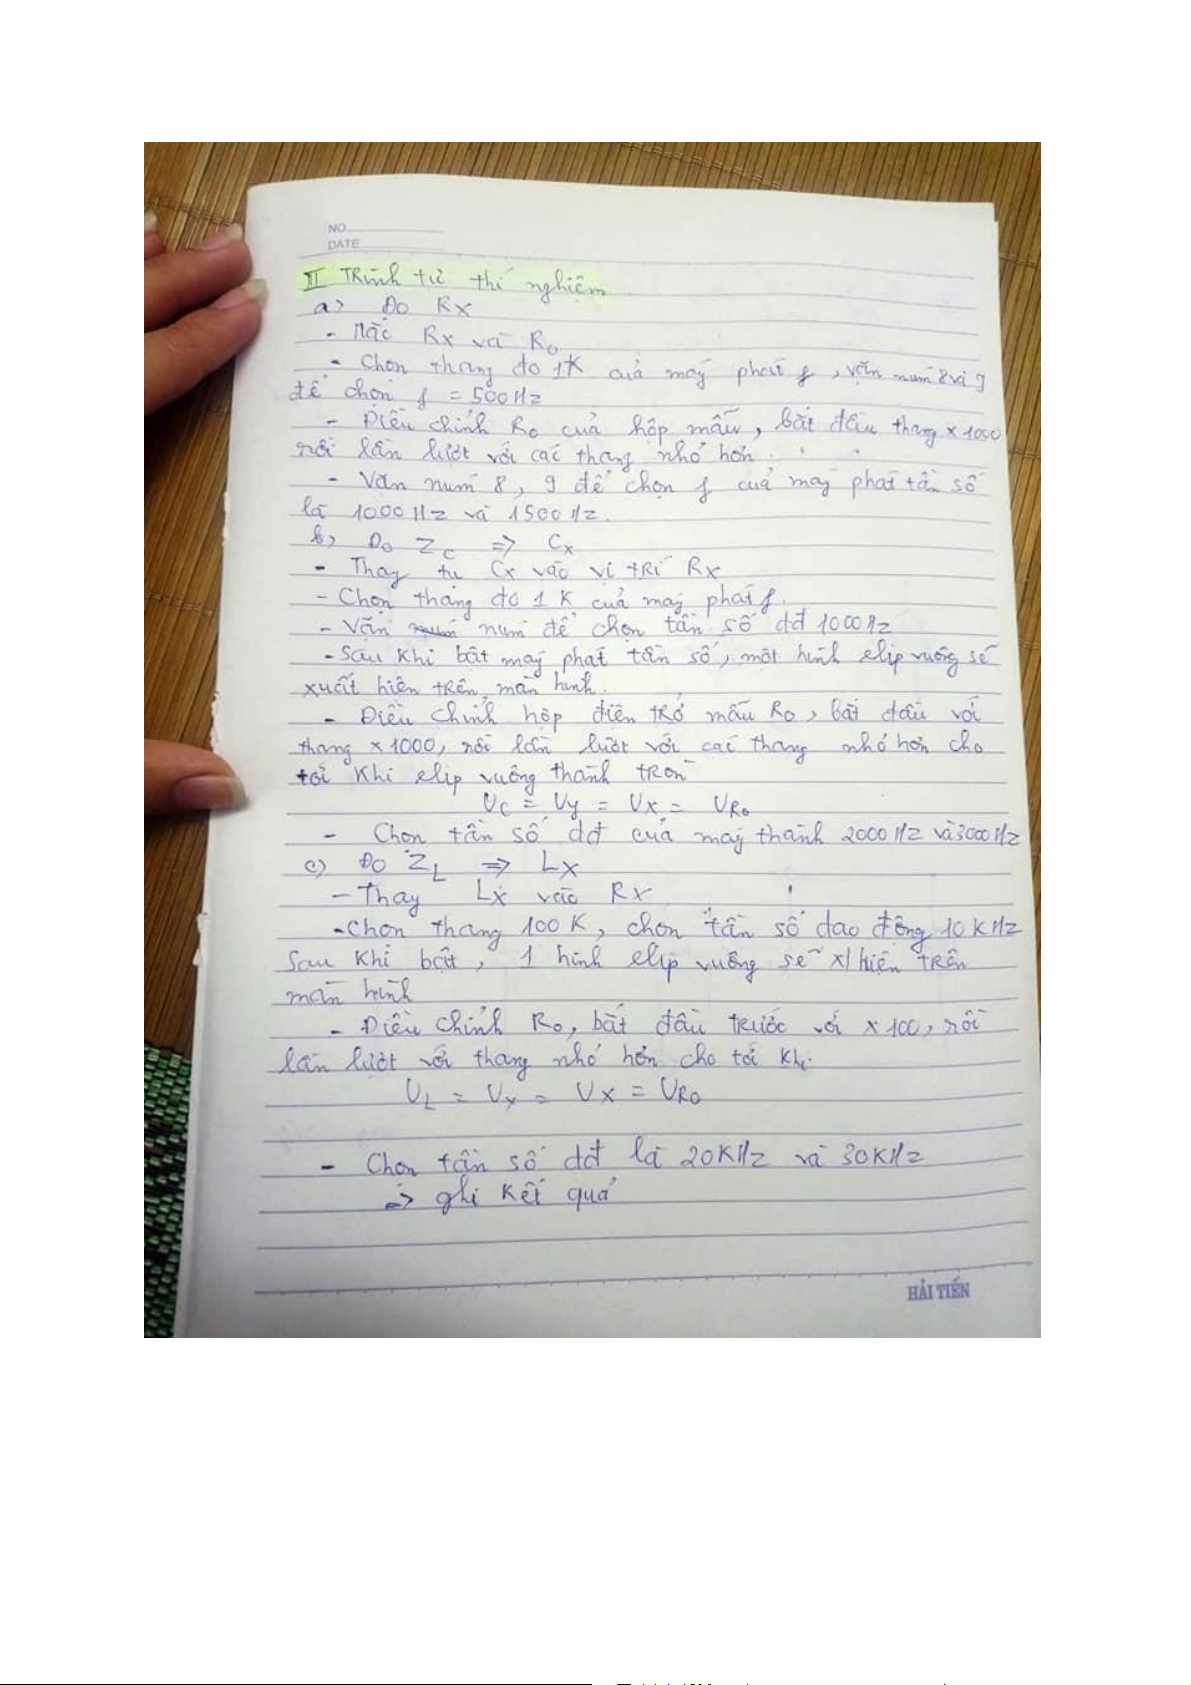 NO
DATE
II Trình tự thí nghiệm
a) Đo Rx
- Mắc Rx và R₀
- Chọn thang đo 1K của máy phát f, vặn núm 8 và 9
để chọn f = 500Hz
- Điều chỉnh R₀ của hộp mẫu, bắt đầu thang x 1000
rồi lần lượt với các thang nhỏ hơn.
- Vặn núm 8, 9 để chọn f của máy phát tần số
là 1000Hz và 1500Hz.
b) Đo Z_C ⇒ C_x
- Thay tụ Cx vào vị trí Rx
- Chọn thang đo 1K của máy phát f.
- Vặn núm để chọn tần số dđ 1000Hz
- Sau khi bật máy phát tần số, một hình elip vuông sẽ
xuất hiện trên màn hình.
- Điều chỉnh hộp điện trở mẫu R₀, bắt đầu với
thang x1000, rồi lần lượt với các thang nhỏ hơn cho
tới khi elip vuông thành tròn
U_C = U_y = U_x = U_R₀
- Chọn tần số dđ của máy thành 2000Hz và 3000Hz
c) Đo Z_L ⇒ L_x
- Thay Lx vào Rx
- Chọn thang 100K, chọn tần số dao động 10KHz
Sau khi bật, 1 hình elip vuông sẽ x/hiện trên
màn hình
- Điều chỉnh R₀, bắt đầu trước với x100, rồi
lần lượt với thang nhỏ hơn cho tới khi.
U_L = U_y = U_x = U_R₀
- Chọn tần số dđ là 20KHz và 30KHz
⇒ ghi kết quả
HẢI TIẾN